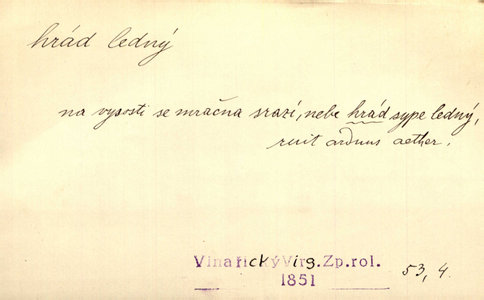 hrád ledný
na vysosti se mračna srazí, nebe hrád sype ledný,
ruit arduus aether.
Vinařický Virg. Zp. rol.
1851
53, 4.